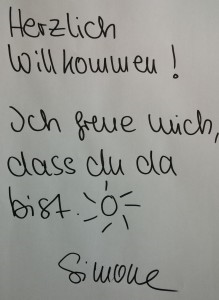 Herzlich
Willkommen!
Ich freue mich,
dass du da
bist.
Simone